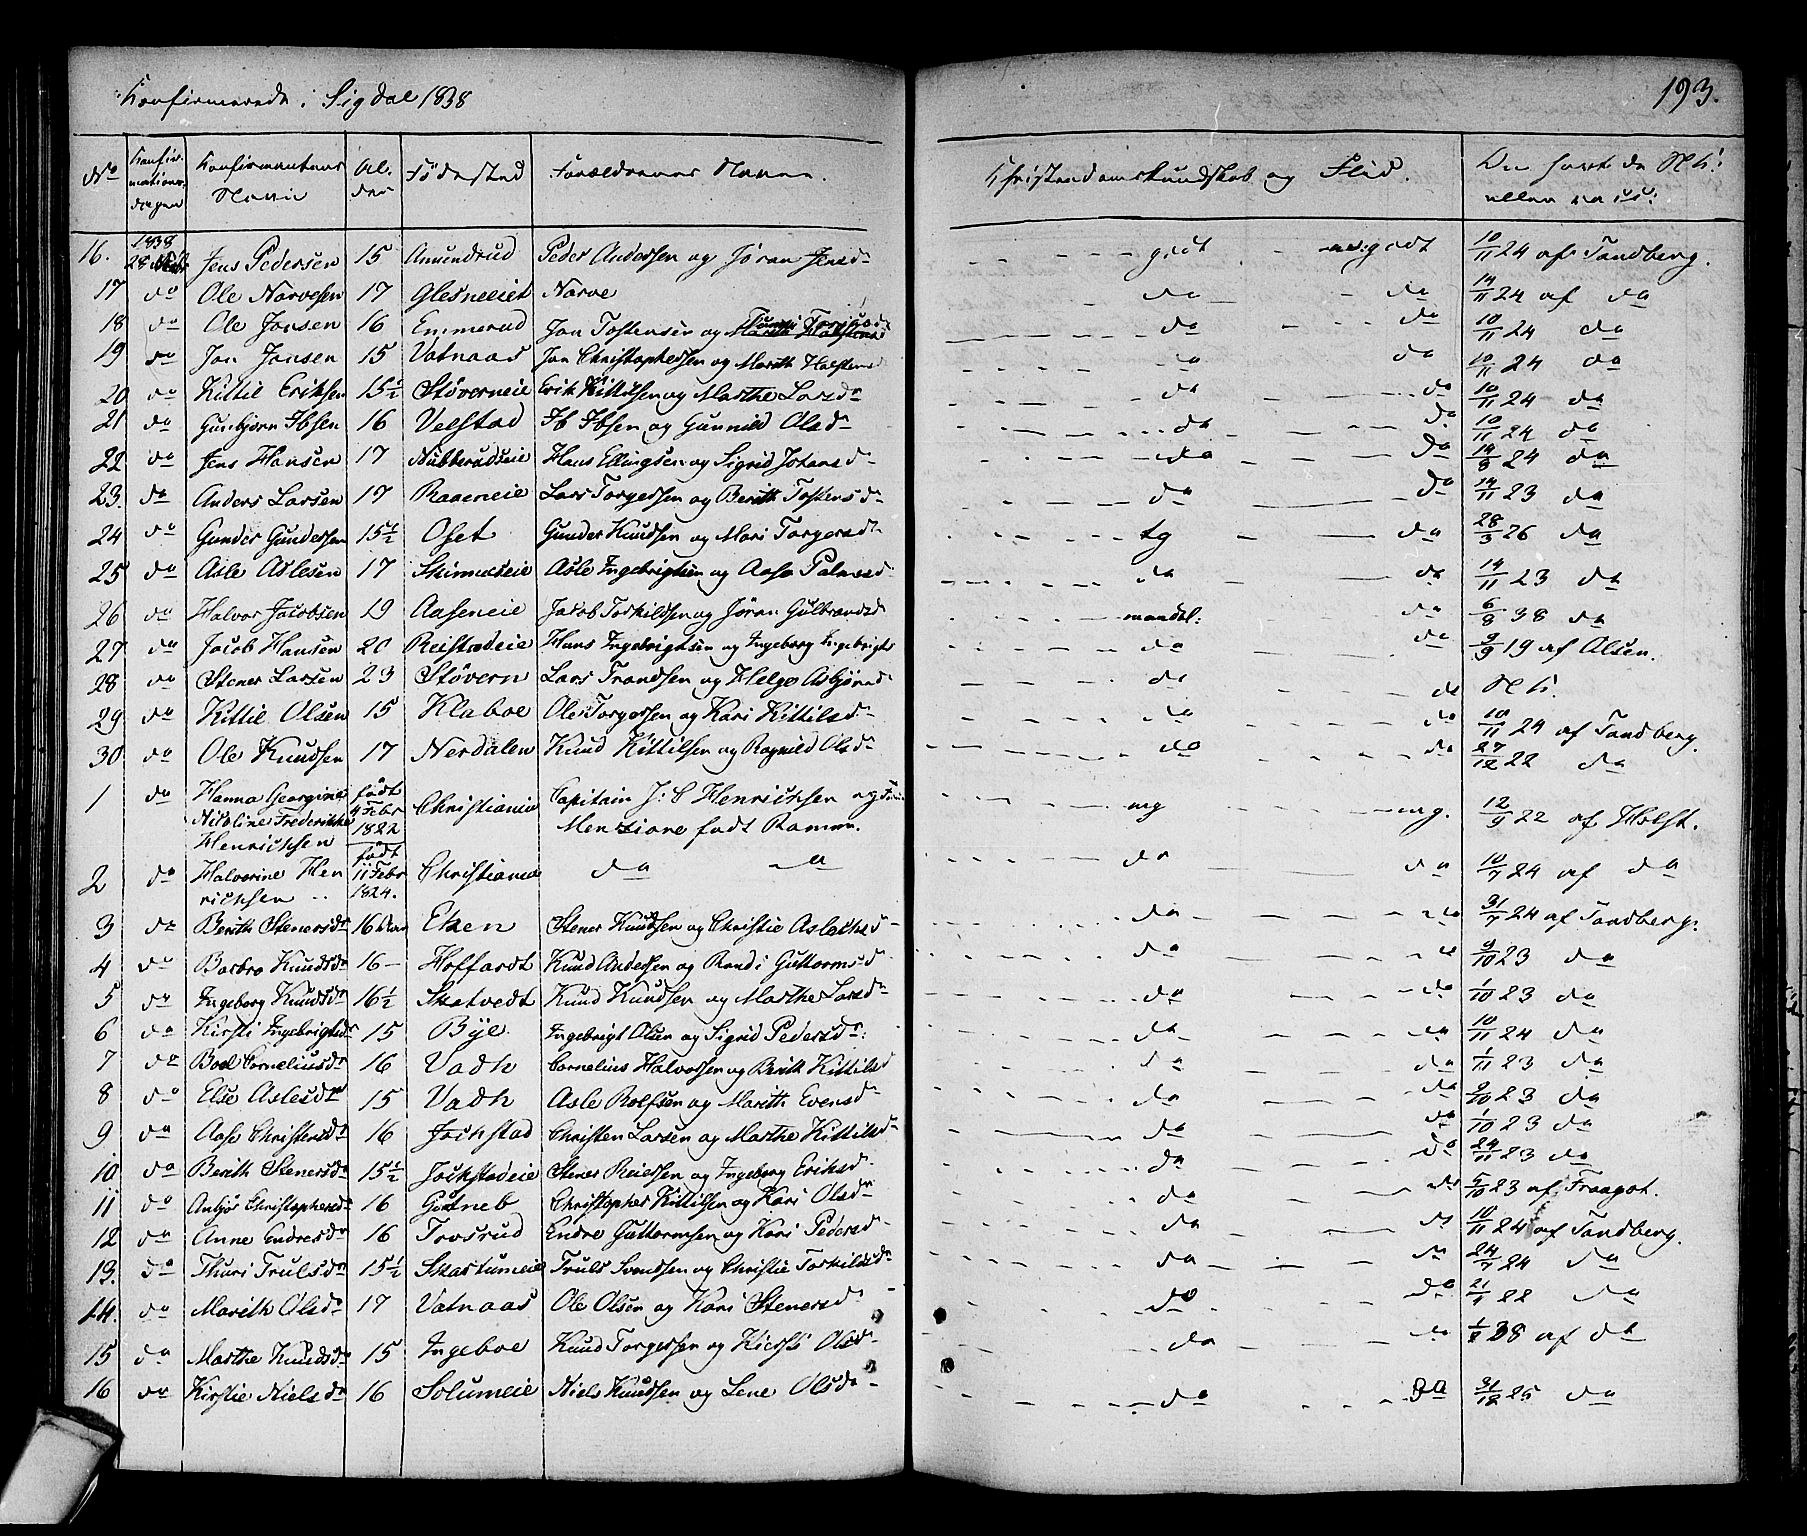 Konfirmerede i Sigdal 1838
193.
No | Konfirmationsdagen | Konfirmantens Navn | Alder | Födested | Forældrenes Navne | Christendomskundskab og Flid. | Om havt de N. K: eller vacc:
16. | 1838 28 | Jens Pedersen | 15 | Amundrud | Peder Andersen og Jöran Jensd- | godt | godt | 10/11 24 af Tandberg.
17 | do | Ole Narvesen | 17 | Glesneeiet | Narve | do | do | 14/11 24 af do
18 | do | Ole Jonsen | 16 | Emmerud | Jon Tostensen og | do | do | 10/11 24 do
19 | do | Jon Jonsen | 15 | Vatnaas | Jon Christophersen og Marith Halstens | do | do | 10/11 24 do
20 | do | Kittil Eriksen | 15½ | Støverneie | Erik Kittilsen og Marthe Larsd- | do | do | 10/11 24 do
21 | do | Gunbjørn Ibsen | 16 | Velstad | Ib Ibsen og Gunnild Olsd- | do | do | 10/11 24 do
22 | do | Jens Hansen | 17 | Nubberudseie | Hans Ellingsen og Sigrid Johansd- | do | do | 24 do
23. | do | Anders Larsen | 17 | Raaeneie | Lars Torgersen og Berith Tostensd- | do | do | 14/11 23 do
24 | do | Gunder Gundersen | 15½ | Oset | Gunder Knudsen og Mari Torgersd- | tg | do | 28/3 26 do
25 | do | Asle Aslesen | 17 | | Asle Ingebrigtsen og Aase Palmesd- | do | do | 14/11 23 do
26 | do | Halvor Jacobsen | 19 | Aaseneie | Jacob Torkildsen og Jöran Gulbrandsd- | maadel: | do | 6/8 38 do
27 | do | Jacob Hansen | 20 | Reistadeie | Hans Ingebrigtsen og Ingeborg Ingebrigts | do | do | 9/9 19 af Olsen.
28 | do | Stener Larsen | 23 | Støvern | Lars Trondsen og Helge Asbjørnsd | do | do | N. K.
29 | do | Kittil Olsen | 15 | Klaboe | Ole Torgersen og Kari Kittilsd- | do | do | 10/11 24 af Tandberg.
30 | do | Ole Knudsen | 17 | Nerdalen | Knud Kittilsen og Ragnild Olsd- | do | do | 27/12 22 do
1 | do | Hanna Georgine Nicoline Frederikke Henrichsen | født 4 Febr 1822 | Christiania | Capitain J: C Henrichsen og Mentzione født Ramm. | mg | mg. | 12/9 22 af Holst.
2 | do | Halvorine Henrichsen | født 11 Febr 1824. | Christiania | do do | do | do | 10/7 24 af do
3 | do | Berith Stenersdr | 16 | Eken | Stener Knudsen og Christie Aslaksd- | do | do | 31/7 24 af Tandberg.
4 | do | Barbro Knudsdr | 16 - | Hoffardt | Knud Andersen og Randi Guttormsd | do | do | 9/10 23 do
5 | do | Ingeborg Knudsdr | 16½ | Skatvedt | Knud Knudsen og Marthe Larsd- | do | do | 1/10 23 do
6 | do | Kirsti Ingebrigtsdr | 15 | Bye | Ingebrigt Olsen og Sigrid Pedersd: | do | do | 10/11 24 do
7 | do | Boel Corneliusdr | 16 | Vadh | Cornelius Halvorsen og Berith Kittilsd | do | do | 1/11 23 do
8 | do | Else Aslesdr | 15 | Vadh | Asle Rolfsen og Marith Evensd- | do | do | 9/10 23 do
9 | do | Aase Christensdr | 16 | Jockstad | Christen Larsen og Marthe Kittilsd- | do | do | 1/10 23 do
10 | do | Berith Stenersdr | 15½ | Jockstadeie | Stener Reiersen og Ingeborg Eriksd- | do | do | 24/11 23 do
11 | do | Anbjør Christophersdr | 16 | Gutneb | Christopher Kittilsen og Kari Olsdr | do | do | 5/10 23 af Fraagot.
12 | do | Anne Endresdr | 16 | Tovsrud | Endre Guttormsen og Kari Pedersd- | do | do | 10/11 24 af Tandberg.
13. | do | Thuri Trulsdr | 15½ | Skartumeie | Truls Svendsen og Christie Torkildsdr | do | do | 24/7 24 do
14. | do | Marith Olsdr | 17 | Vatnaas | Ole Olsen og Kari Stenersd- | do | do | 22 do
15 | do | Marthe Knudsdr | 15 | Ingeboe | Knud Torgersen og Kirsti Olsd- | do | do | 38 af do
16 | do | Kirstie Nielsdr | 16 | Solumeie | Niels Knudsen og Lene Olsdr- | do | do | 31/12 25 do